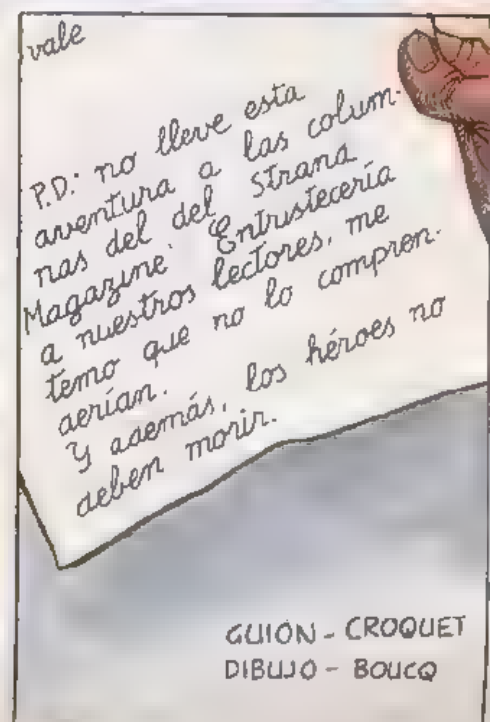 vale
P.D.: no lleve esta
aventura a las colum-
nas del del Strand
Magazine. Entristecería
a nuestros lectores, me
temo que no lo compren-
derían.
Y además, los héroes no
deben morir.
GUIÓN - CROQUET
DIBUJO - BOUCQ